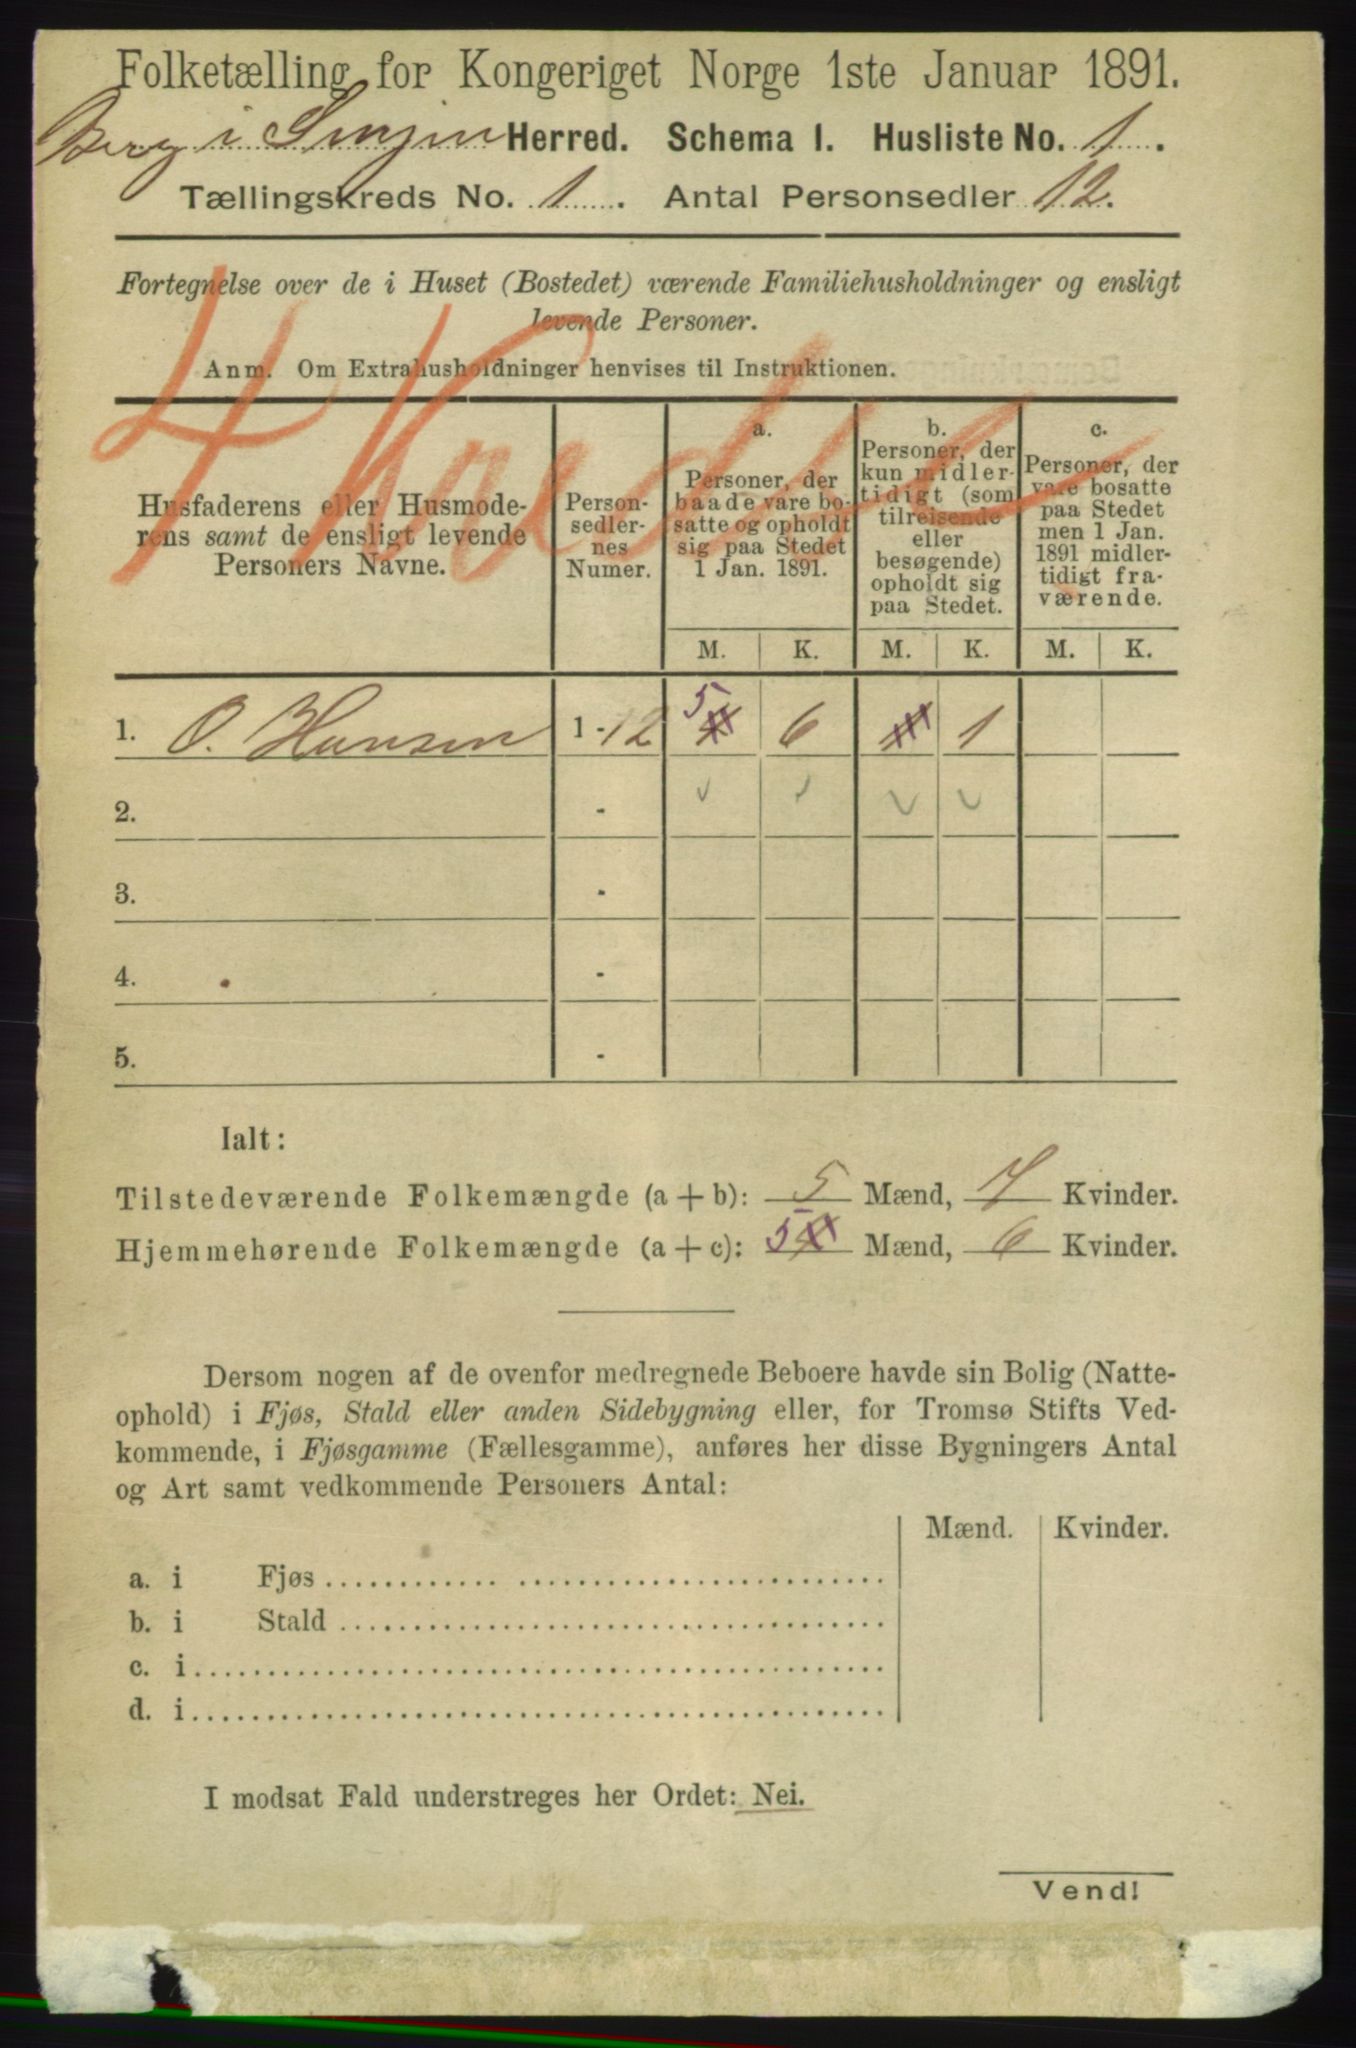 Folketælling for Kongeriget Norge 1ste Januar 1891.
Berg i Senjen Herred. Schema I. Husliste No. 1.
Tællingskreds No. 1. Antal Personsedler 12.
Fortegnelse over de i Huset (Bostedet) værende Familiehusholdninger og ensligt
levende Personer.
Anm. Om Extrahusholdninger henvises til Instruktionen.
4 Kreds
Husfaderens eller Husmode-
rens samt de ensligt levende
Personers Navne.
Person-
sedler-
nes
Numer.
a.
Personer, der
baade vare bo-
satte og opholdt
sig paa Stedet
1 Jan. 1891.
b.
Personer, der
kun midler-
tidigt (som
tilreisende
eller
besøgende)
opholdt sig
paa Stedet.
c.
Personer, der
vare bosatte
paa Stedet
men 1 Jan.
1891 midler-
tidigt fra-
værende.
M. K. M. K. M. K.
1. O. Hansen 1-12 5 6 1
2. -
3. -
4. -
5. -
Ialt:
Tilstedeværende Folkemængde (a+b): 5 Mænd, 7 Kvinder.
Hjemmehørende Folkemængde (a+c): 5 Mænd, 6 Kvinder.
Dersom nogen af de ovenfor medregnede Beboere havde sin Bolig (Natte-
ophold) i Fjøs, Stald eller anden Sidebygning eller, for Tromsø Stifts Ved-
kommende, i Fjøsgamme (Fællesgamme), anføres her disse Bygningers Antal
og Art samt vedkommende Personers Antal:
Mænd. Kvinder.
a. i Fjøs
b. i Stald
c. i
d. i
I modsat Fald understreges her Ordet: Nei.
Vend!